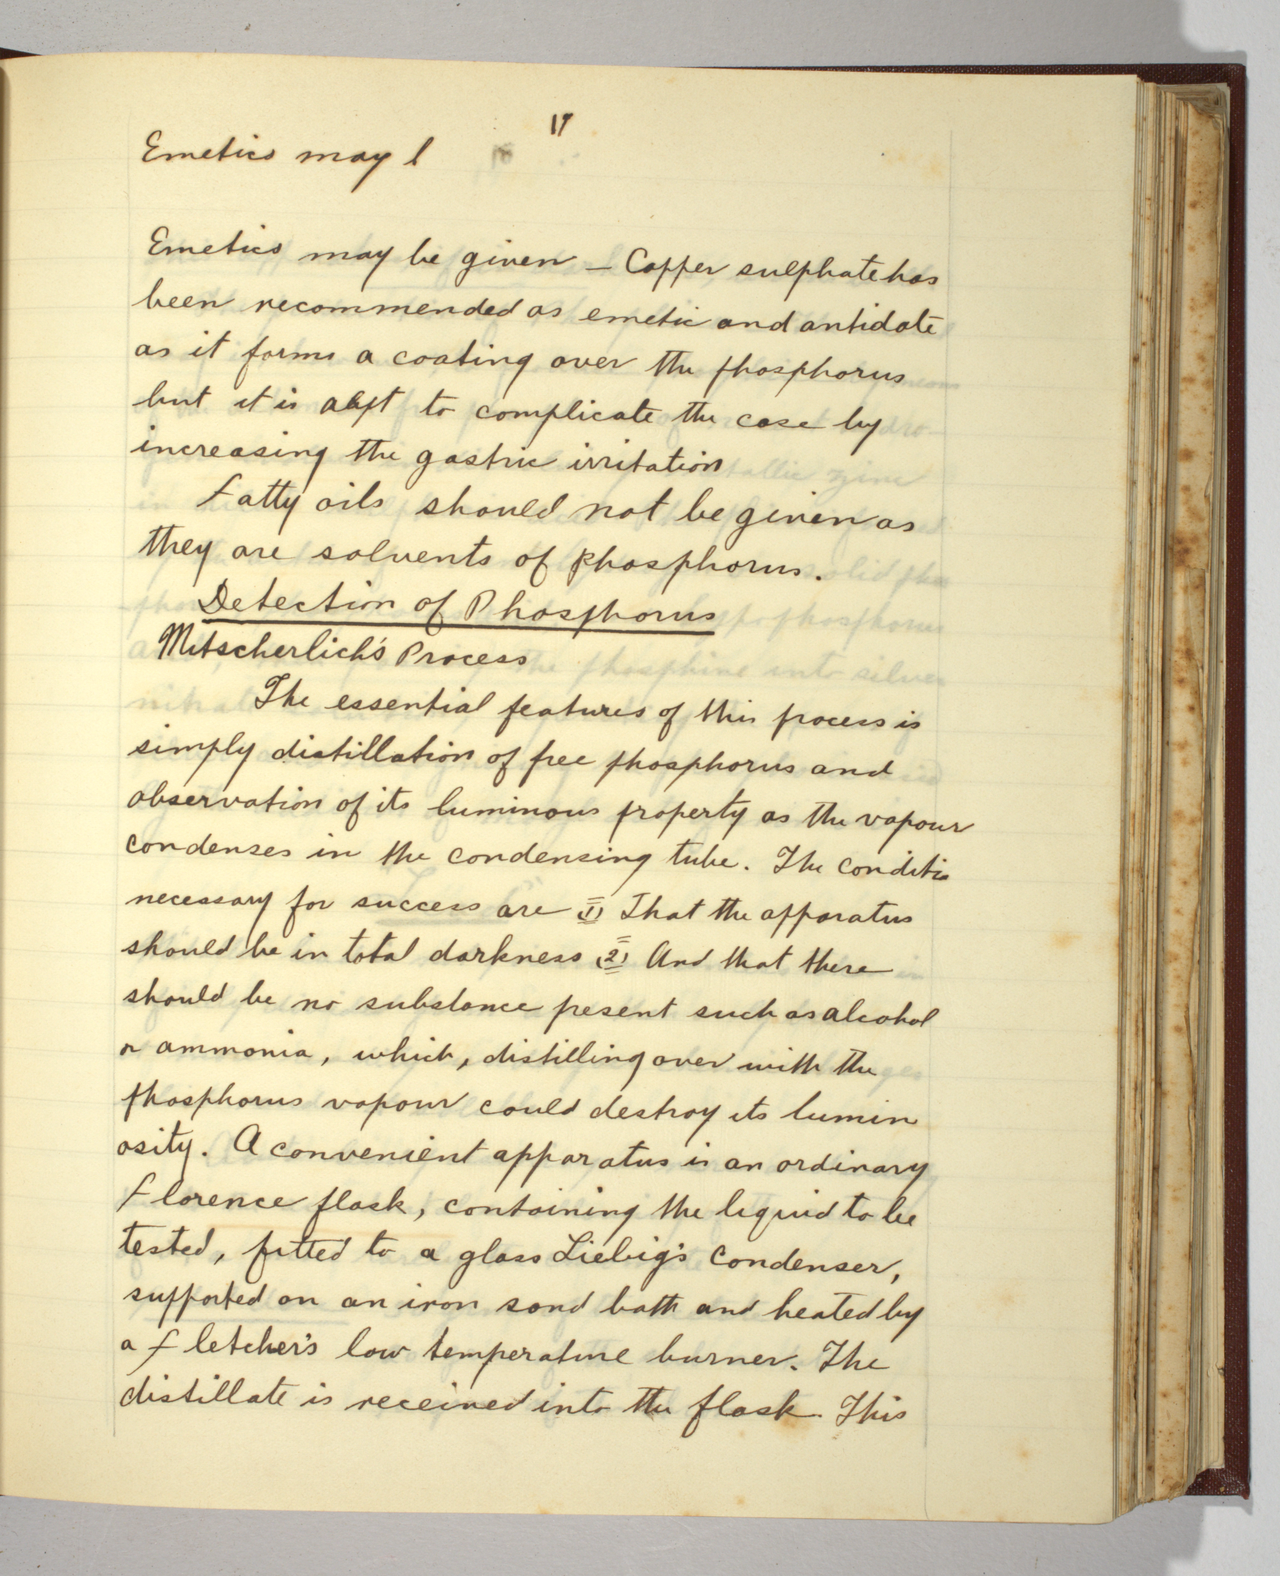 17
Emetics may b
Emetics may be given – Copper sulphate has
been recommended as emetic and antidote
as it forms a coating over the phosphorus
but it is apt to complicate the case by
increasing the gastric irritation
Fatty oils should not be given as
they are solvents of phosphorus.
Detection of Phosphorus
Mitscherlich's Process
The essential features of this process is
simply distillation of free phosphorus and
observation of its luminous property as the vapour
condenses in the condensing tube. The conditio
necessary for success are (1) That the apparatus
should be in total darkness (2) And that there
should be no substance present such as alcohol
or ammonia, which, distilling over with the
phosphorus vapour could destroy its lumin
osity. A convenient apparatus is an ordinary
Florence flask, containing the liquid to be
tested, fitted to a glass Liebig's Condenser,
supported on an iron sand bath and heated by
a Fletcher's low temperature burner. The
distillate is received into the flask. This